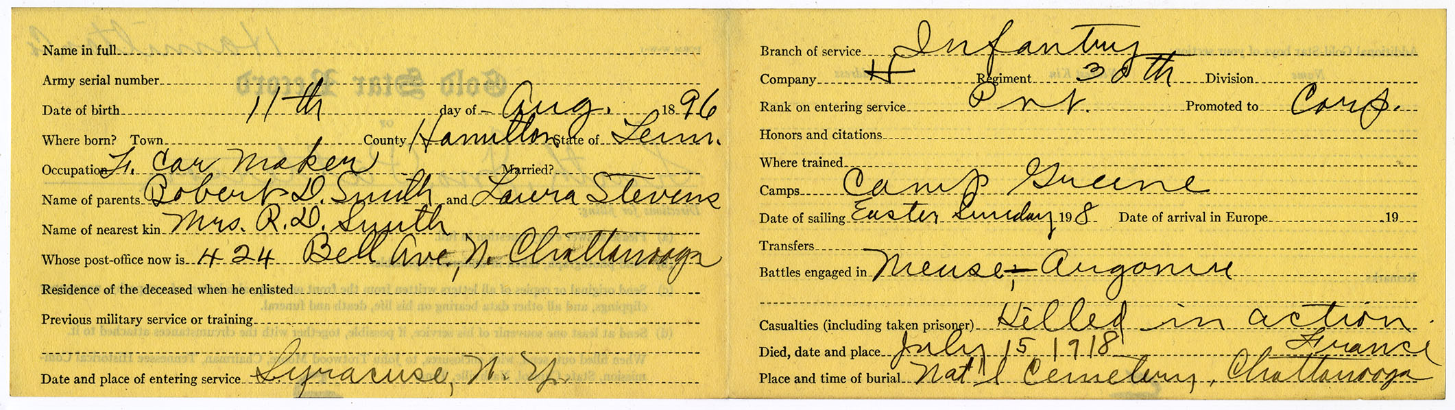 Name in full
Army serial number
Date of birth 11th day of Aug. 1896
Where born? Town County Hamilton State of Tenn.
Occupation Car Maker Married?
Name of parents Robert D. Smith and Laura Stevens
Name of nearest kin Mrs. R.D. Smith
Whose post-office now is 424 Bell Ave, N. Chattanooga
Residence of the deceased when he enlisted
Previous military service or training
Date and place of entering service Syracuse, N.Y.
Branch of service Infantry
Company H Regiment 30th Division
Rank on entering service Pvt. Promoted to Corp.
Honors and citations
Where trained
Camps Camp Greene
Date of sailing Easter Sunday 1918 Date of arrival in Europe 19
Transfers
Battles engaged in Meuse-Argonne
Casualties (including taken prisoner) Killed in action.
Died, date and place July 15 1918 France
Place and time of burial Nat'l Cemetery, Chattanooga